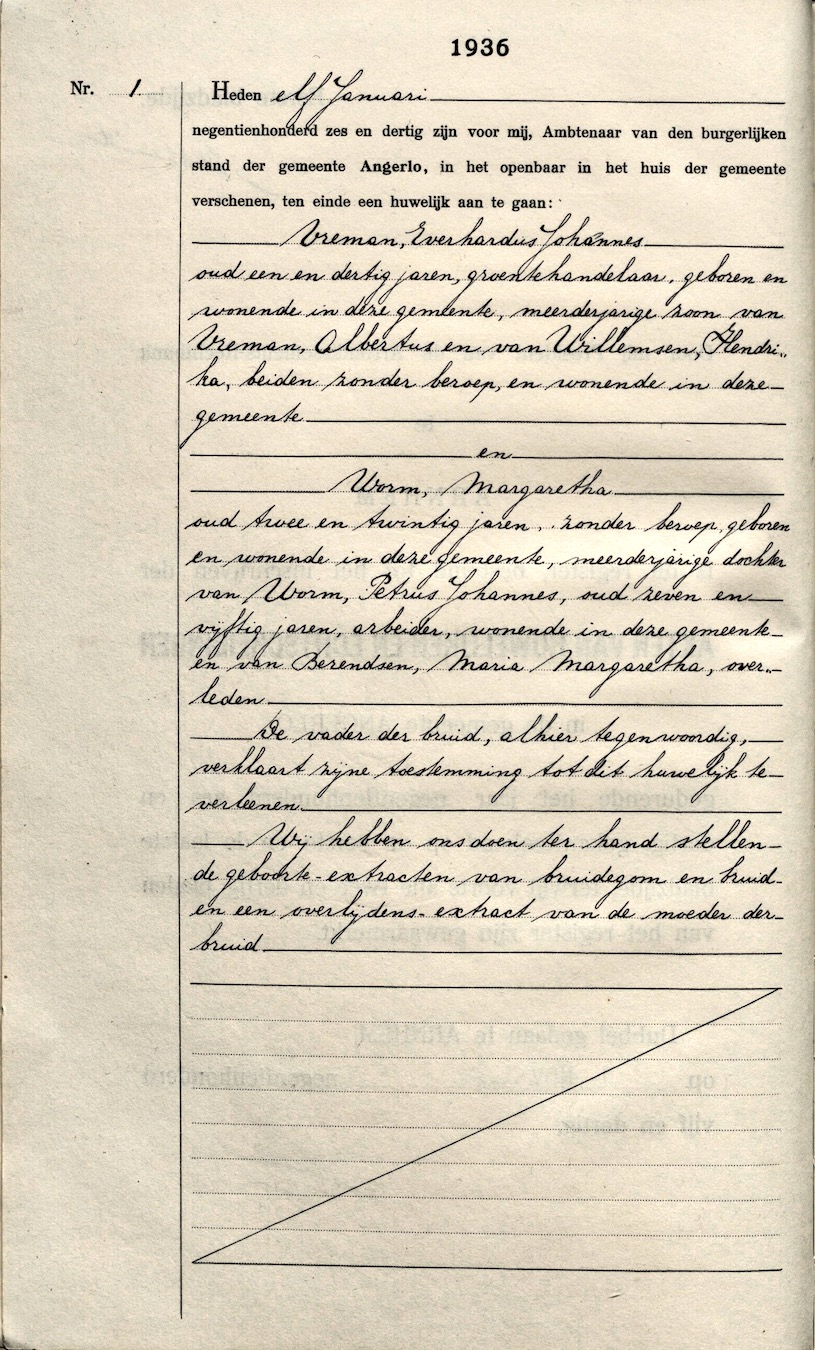 1936
Nr. 1
Heden elf Januari
negentienhonderd zes en dertig zijn voor mij, Ambtenaar van den burgerlijken
stand der gemeente Angerlo, in het openbaar in het huis der gemeente
verschenen, ten einde een huwelijk aan te gaan:
Vreman, Everhardus Johannes
oud een en dertig jaren, groentehandelaar, geboren en
wonende in deze gemeente, meerderjarige zoon van
Vreman, Albertus en van Willemsen, Hendri„
ka, beiden zonder beroep, en wonende in deze
gemeente
en
Worm, Margaretha
oud twee en twintig jaren, zonder beroep, geboren
en wonende in deze gemeente, meerderjarige dochter
van Worm, Petrus Johannes, oud zeven en
vijftig jaren, arbeider, wonende in deze gemeente
en van Berendsen, Maria Margaretha, over„
leden
De vader der bruid, alhier tegenwoordig,
verklaart zijne toestemming tot dit huwelijk te
verleenen
Wij hebben ons doen ter hand stellen
de geboorte-extracten van bruidegom en bruid
en een overlijdens-extract van de moeder der
bruid